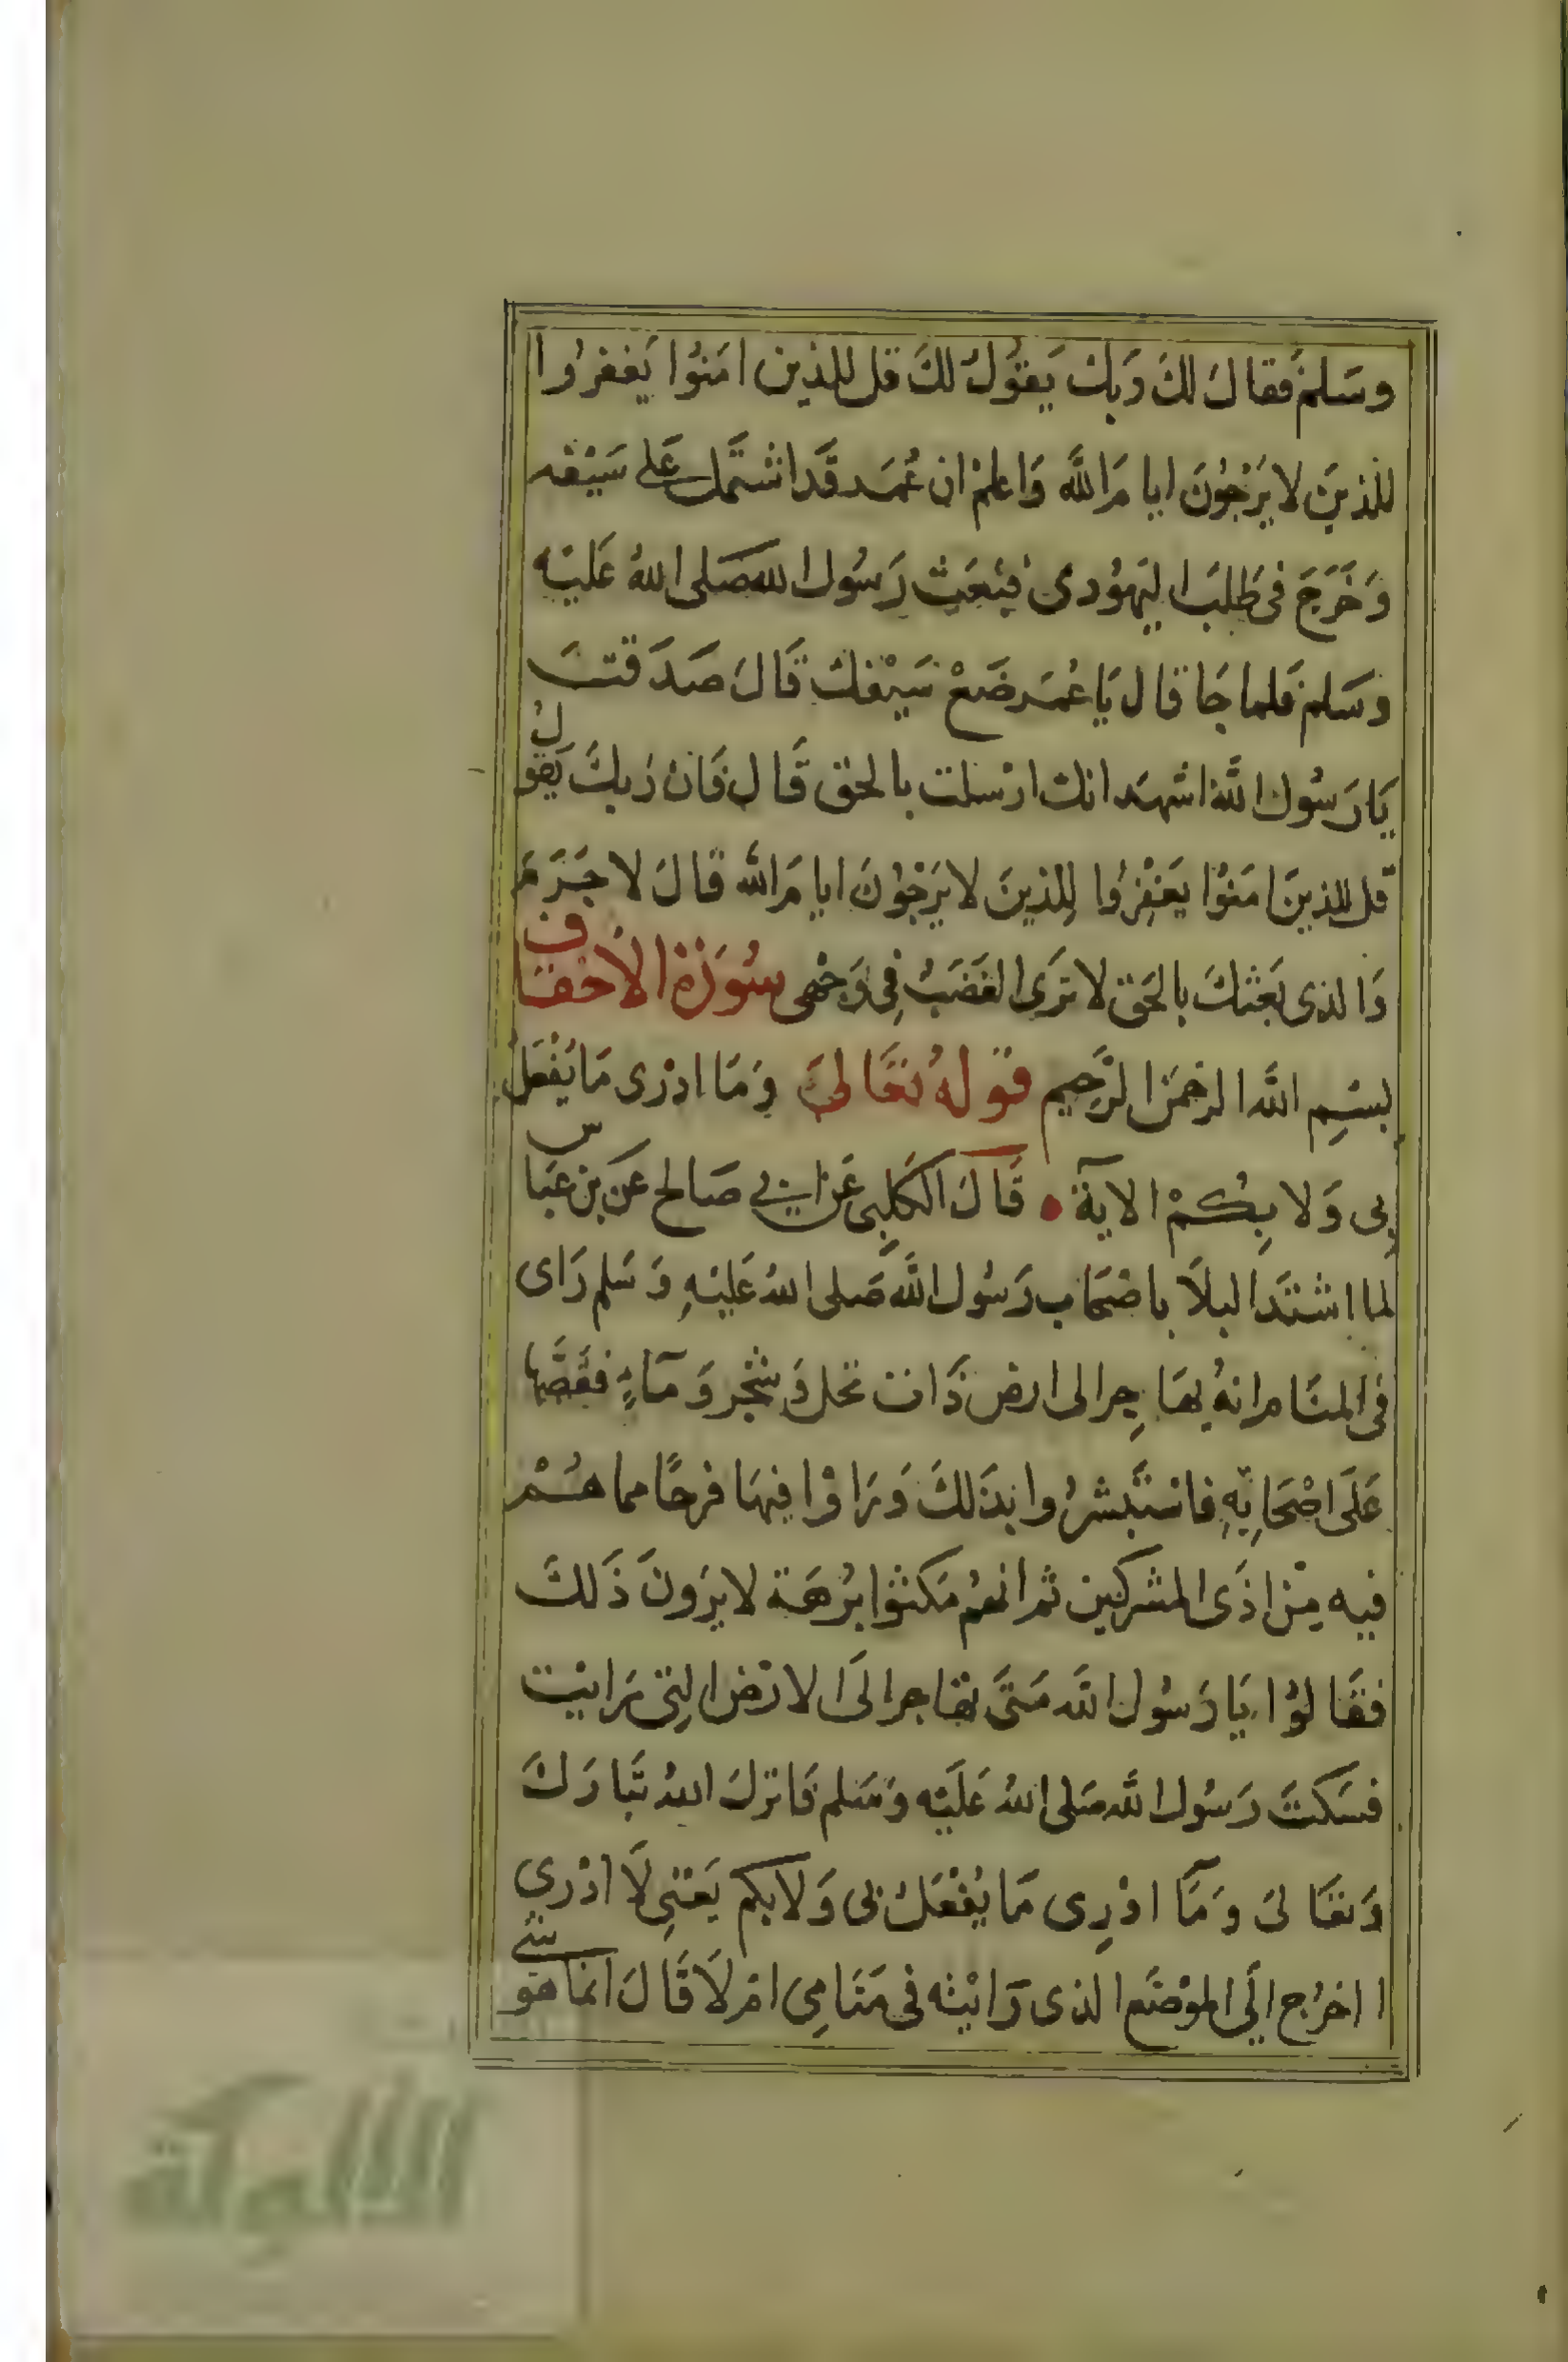 وسَلم فقال لك ربك يقول لك قل للذين امنوا يغفروا
للذين لا يرجون ايام الله واعلم ان عمر قد اشتمل على سيفه
وخرج في طلب اليهودى فبعث رسول الله صلى الله عليه
وسلم فلما جا قال يا عمر ضع سيفك قال صدقت
يا رسول الله اشهد انك ارسلت بالحق قال فان ربك يقول
قل للذين امنوا يغفروا للذين لا يرجون ايام الله قال لا جرم
والذى بعثك بالحق لا ترى الغضب في وجهى سورة الاحقاف
بسم الله الرحمن الرحيم قوله تعالى وما ادرى ما يفعل
بى ولا بكم الآية قال الكلبى عن ابي صالح عن بن عباس
لما اشتد البلا باصحاب رسول الله صلى الله عليه وسلم راى
في المنام انه يهاجر الى ارض ذات نخل وشجر ومآء فقصها
على اصحابه فاستبشروا بذلك وراوا فيها فرحا مما هم
فيه من اذى المشركين ثم انهم مكثوا برهة لا يرون ذلك
فقالوا يا رسول الله متى نهاجر الى الارض التى رايت
فسكت رسول الله صلى الله عليه وسلم فانزل الله تبارك
وتعالى ومآ ادرى ما يفعل بى ولا بكم يعنى لا ادري
ااخرج الى الموضع الذى رايته في منامى ام لا قال انما هو شي
الألوكة